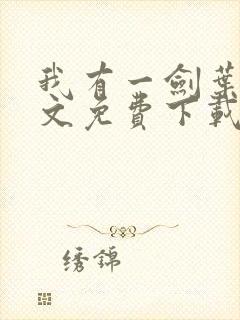 我有一劍葉
文免費下載
绣錦